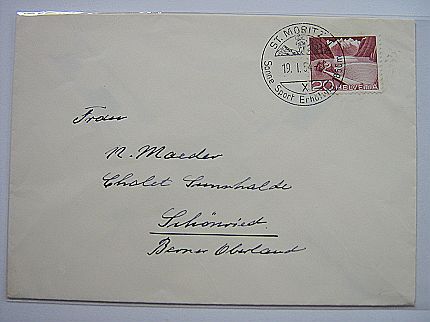 ST. MORITZ
19. I. 5
Sonne Sport Erholung
X
20 HELVETIA
Frau
N. Maeder
Chalet Sunnhalde
Schönried
Berner Oberland